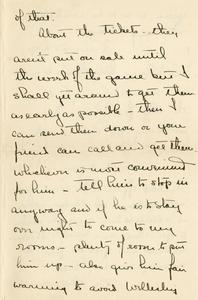 of that.
About the tickets - they
aren't put on sale until
the week of the game but I
shall get around to get them
as early as possible - then I
can send them down or your
friend can call and get them
whichever is most convenient
for him - tell him to stop in
anyway and if he is to stay
over night to come to my
rooms - plenty of room to put
him up - also give him fair
warning to avoid Wellesley